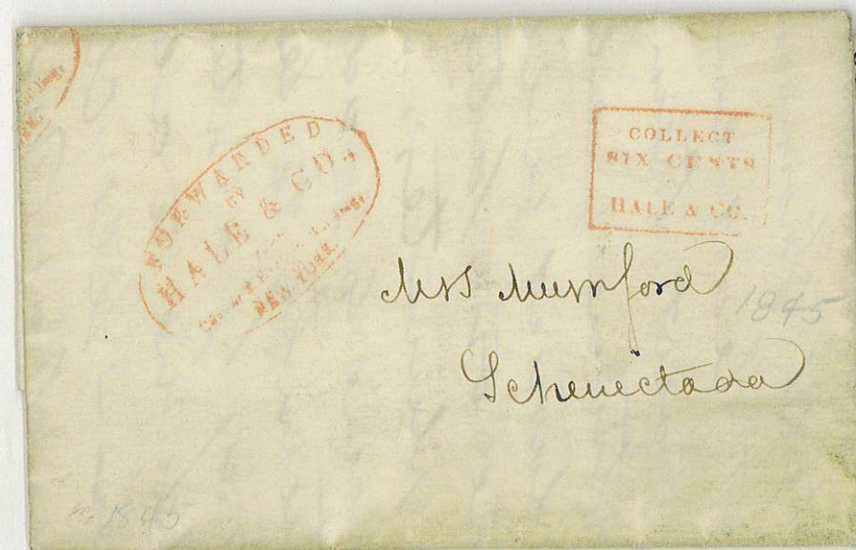 FORWARDED
BY
HALE & CO.,
NEW YORK.
COLLECT
SIX CENTS
HALE & CO.
Mrs Mumford
1845
Schenectada
1845